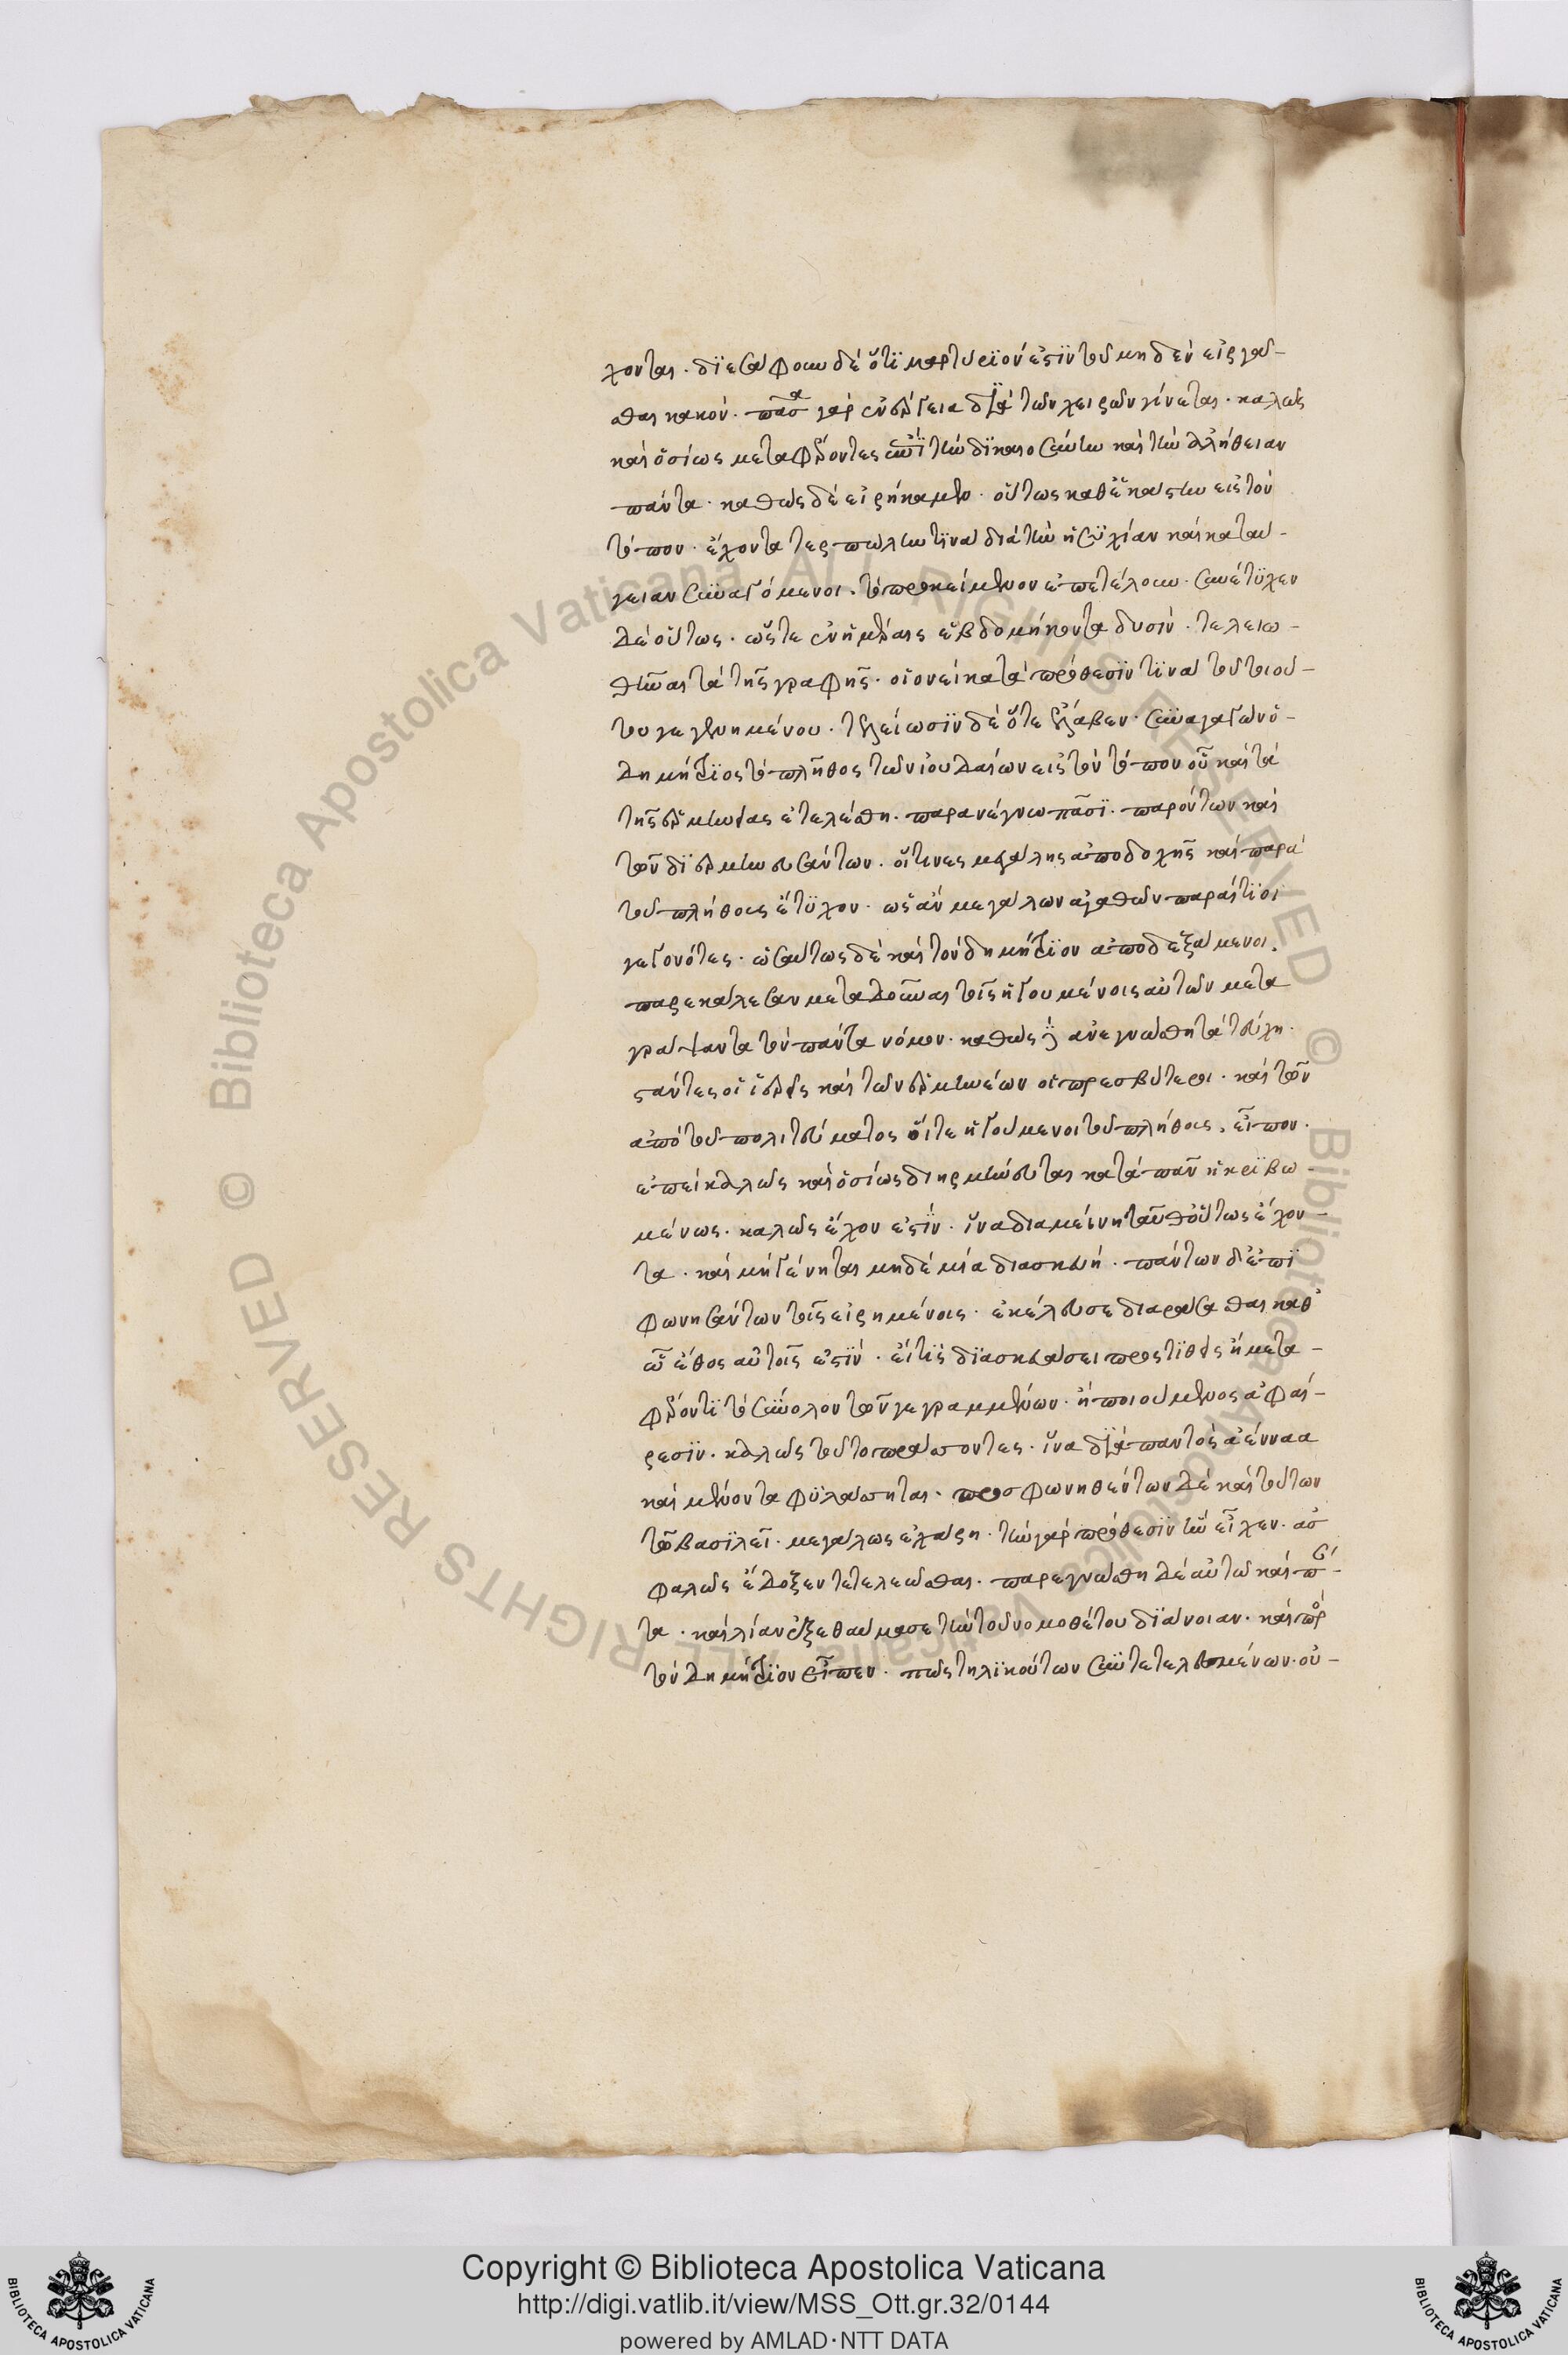 χονται. διεσάφουν δὲ ὅτι μαρτύριόν ἐστιν τοῦ μηδὲν εἰργά-
σθαι κακόν. πᾶσα γὰρ ἐνέργεια διὰ τῶν χειρῶν γίνεται. καλῶς
καὶ ὁσίως μεταφέροντες ἐπὶ τὴν δικαιοσύνην καὶ τὴν ἀλήθειαν
πάντα. καθὼς δὲ εἰρήκαμεν. οὕτως καθ' ἑκάστην εἰς τὸν
τόπον. ἔχοντα τερπωλὴν τινὰ διὰ τὴν ἡσυχίαν καὶ καταύ-
γειαν συναγόμενοι. τὸ προκείμενον ἐπετέλουν. συνέτυχεν
δὲ οὕτως. ὥστε ἐν ἡμέραις ἑβδομήκοντα δυσὶν. τελειω-
θῆναι τὰ τῆς γραφῆς. οἱονεὶ κατὰ πρόθεσίν τινα τοῦ τιού-
του γεγενημένου. τελείωσιν δὲ ὅτε ἔλαβεν. συναγαγὼν ὁ
Δημήτριος τὸ πλῆθος τῶν ἰουδαίων εἰς τὸν τόπον οὗ καὶ τὰ
τῆς ἑρμηνείας ἐτελέσθη. παρανέγνω πᾶσι. παρόντων καὶ
τῶν διερμηνευσάντων. οἵτινες μεγάλης ἀποδοχῆς καὶ παρὰ
τοῦ πλήθους ἔτυχον. ὡς ἂν μεγάλων ἀγαθῶν παραίτιοι
γεγονότες. ὡσαύτως δὲ καὶ τὸν δημήτριον ἀποδεξάμενοι.
παρεκάλεσαν μεταδοῦναι τοῖς ἡγουμένοις αὐτῶν μετα
γράψαντα τὸν πάντα νόμον. καθὼς δὲ ἀνεγνώσθη τὰ τεύχη.
στάντες οἱ ἱερεῖς καὶ τῶν ἑρμηνέων οἱ πρεσβύτεροι. καὶ τῶν
ἀπὸ τοῦ πολιτεύματος οἵ τε ἡγούμενοι τοῦ πλήθους. εἶπον.
ἐπεὶ καλῶς καὶ ὁσίως διηρμήνευται κατὰ πᾶν ἠκριβω-
μένως. καλῶς ἔχον ἐστὶν. ἵνα διαμείνῃ ταῦθ' οὕτως ἔχον-
τα. καὶ μὴ γένηται μηδὲ μία διασκευή. πάντων δ' ἐπι
φωνησάντων τοῖς εἰρημένοις. ἐκέλευσε διαράσασθαι καθ'
ὣ ἔθος αὐτοῖς ἐστίν. εἴ τις διασκευάσει προστιθεὶς ἢ μετα-
φέροντι τὸ σύνολον τῶν γεγραμμένων. ἢ ποιούμενος ἀφαί-
ρεσιν. καλῶς τοῦτο πράσσοντες. ἵνα διὰ παντὸς ἀένναα
καὶ μένοντα φυλάσσηται. προσφωνηθέντων δὲ καὶ τούτων
τῷ βασιλεῖ. μεγάλως ἐχάρη. τὴν γὰρ πρόθεσιν ἣν εἶχεν. ἀσ
φαλῶς ἔδοξεν τετελειῶσθαι. παρεγνώσθη δὲ αὐτῷ καὶ πάν-
τα. καὶ λίαν ἐξεθαύμασε τὴν τοῦ νομοθέτου διάνοιαν. καὶ πρὸς
τὸν Δημήτριον εἶπεν. πῶς τηλικούτων συντετελεσμένων. οὐ-
Copyright © Biblioteca Apostolica Vaticana
http://digi.vatlib.it/view/MSS_Ott.gr.32/0144
powered by AMLAD·NTT DATA